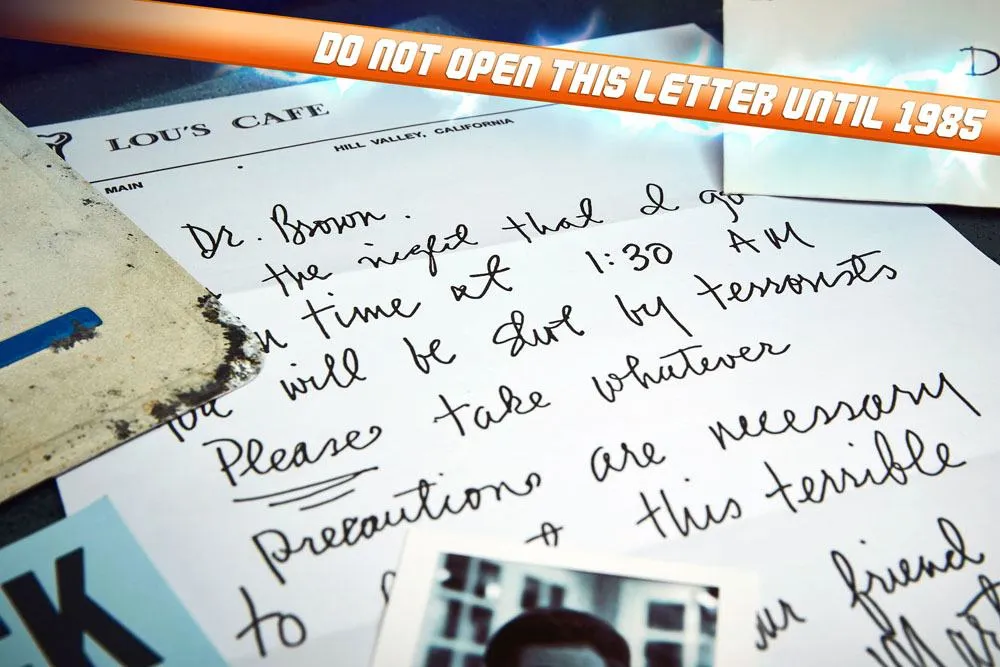 DO NOT OPEN THIS LETTER UNTIL 1985
LOU'S CAFE
HILL VALLEY, CALIFORNIA
MAIN
D
Dr. Brown.
the night that I go
n time at 1:30 AM
you will be shot by terrorists
Please take whatever
precautions are necessary
to this terrible
ur friend
Mart
K